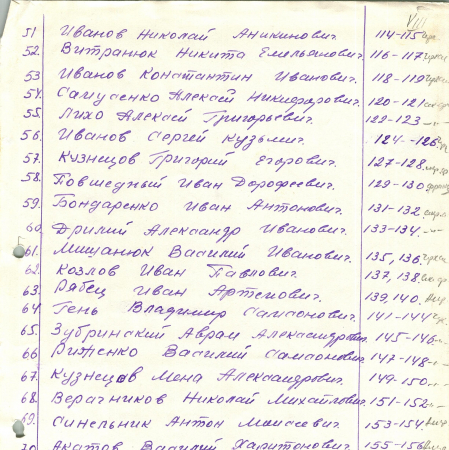 VIII
51 Иванов Николай Аникинович. 114-115
52. Витранюк Никита Емельянович. 116-117
53 Иванов Константин Иванович. 118-119
54. Самусенко Алексей Никифорович. 120-121
55. Лихо Алексей Григорьевич. 122-123 —"—
56. Иванов Сергей Кузьмич. 124-126
57. Кузнецов Григорий Егорович. 127-128
58. Повшедный Иван Дорофеевич. 129-130
59. Бондаренко Иван Антонович. 131-132
60. Дрилий Александр Иванович. 133-134. —"—
61. Мищанюк Василий Иванович. 135, 136
62. Козлов Иван Павлович. 137, 138
63. Рябец Иван Артемович. 139, 140.
64. Гень Владимир Самсонович. 141-144
65. Зубринский Аврам Александрович. 145-146
66 Виженко Василий Самсонович 147-148
67. Кузнецов Мена Александрович. 149-150
68. Верачников Николай Михайлович. 151-152
69. Синельник Антон Моисевич. 153-154
70 Акатов Василий Харитонович. 155-156